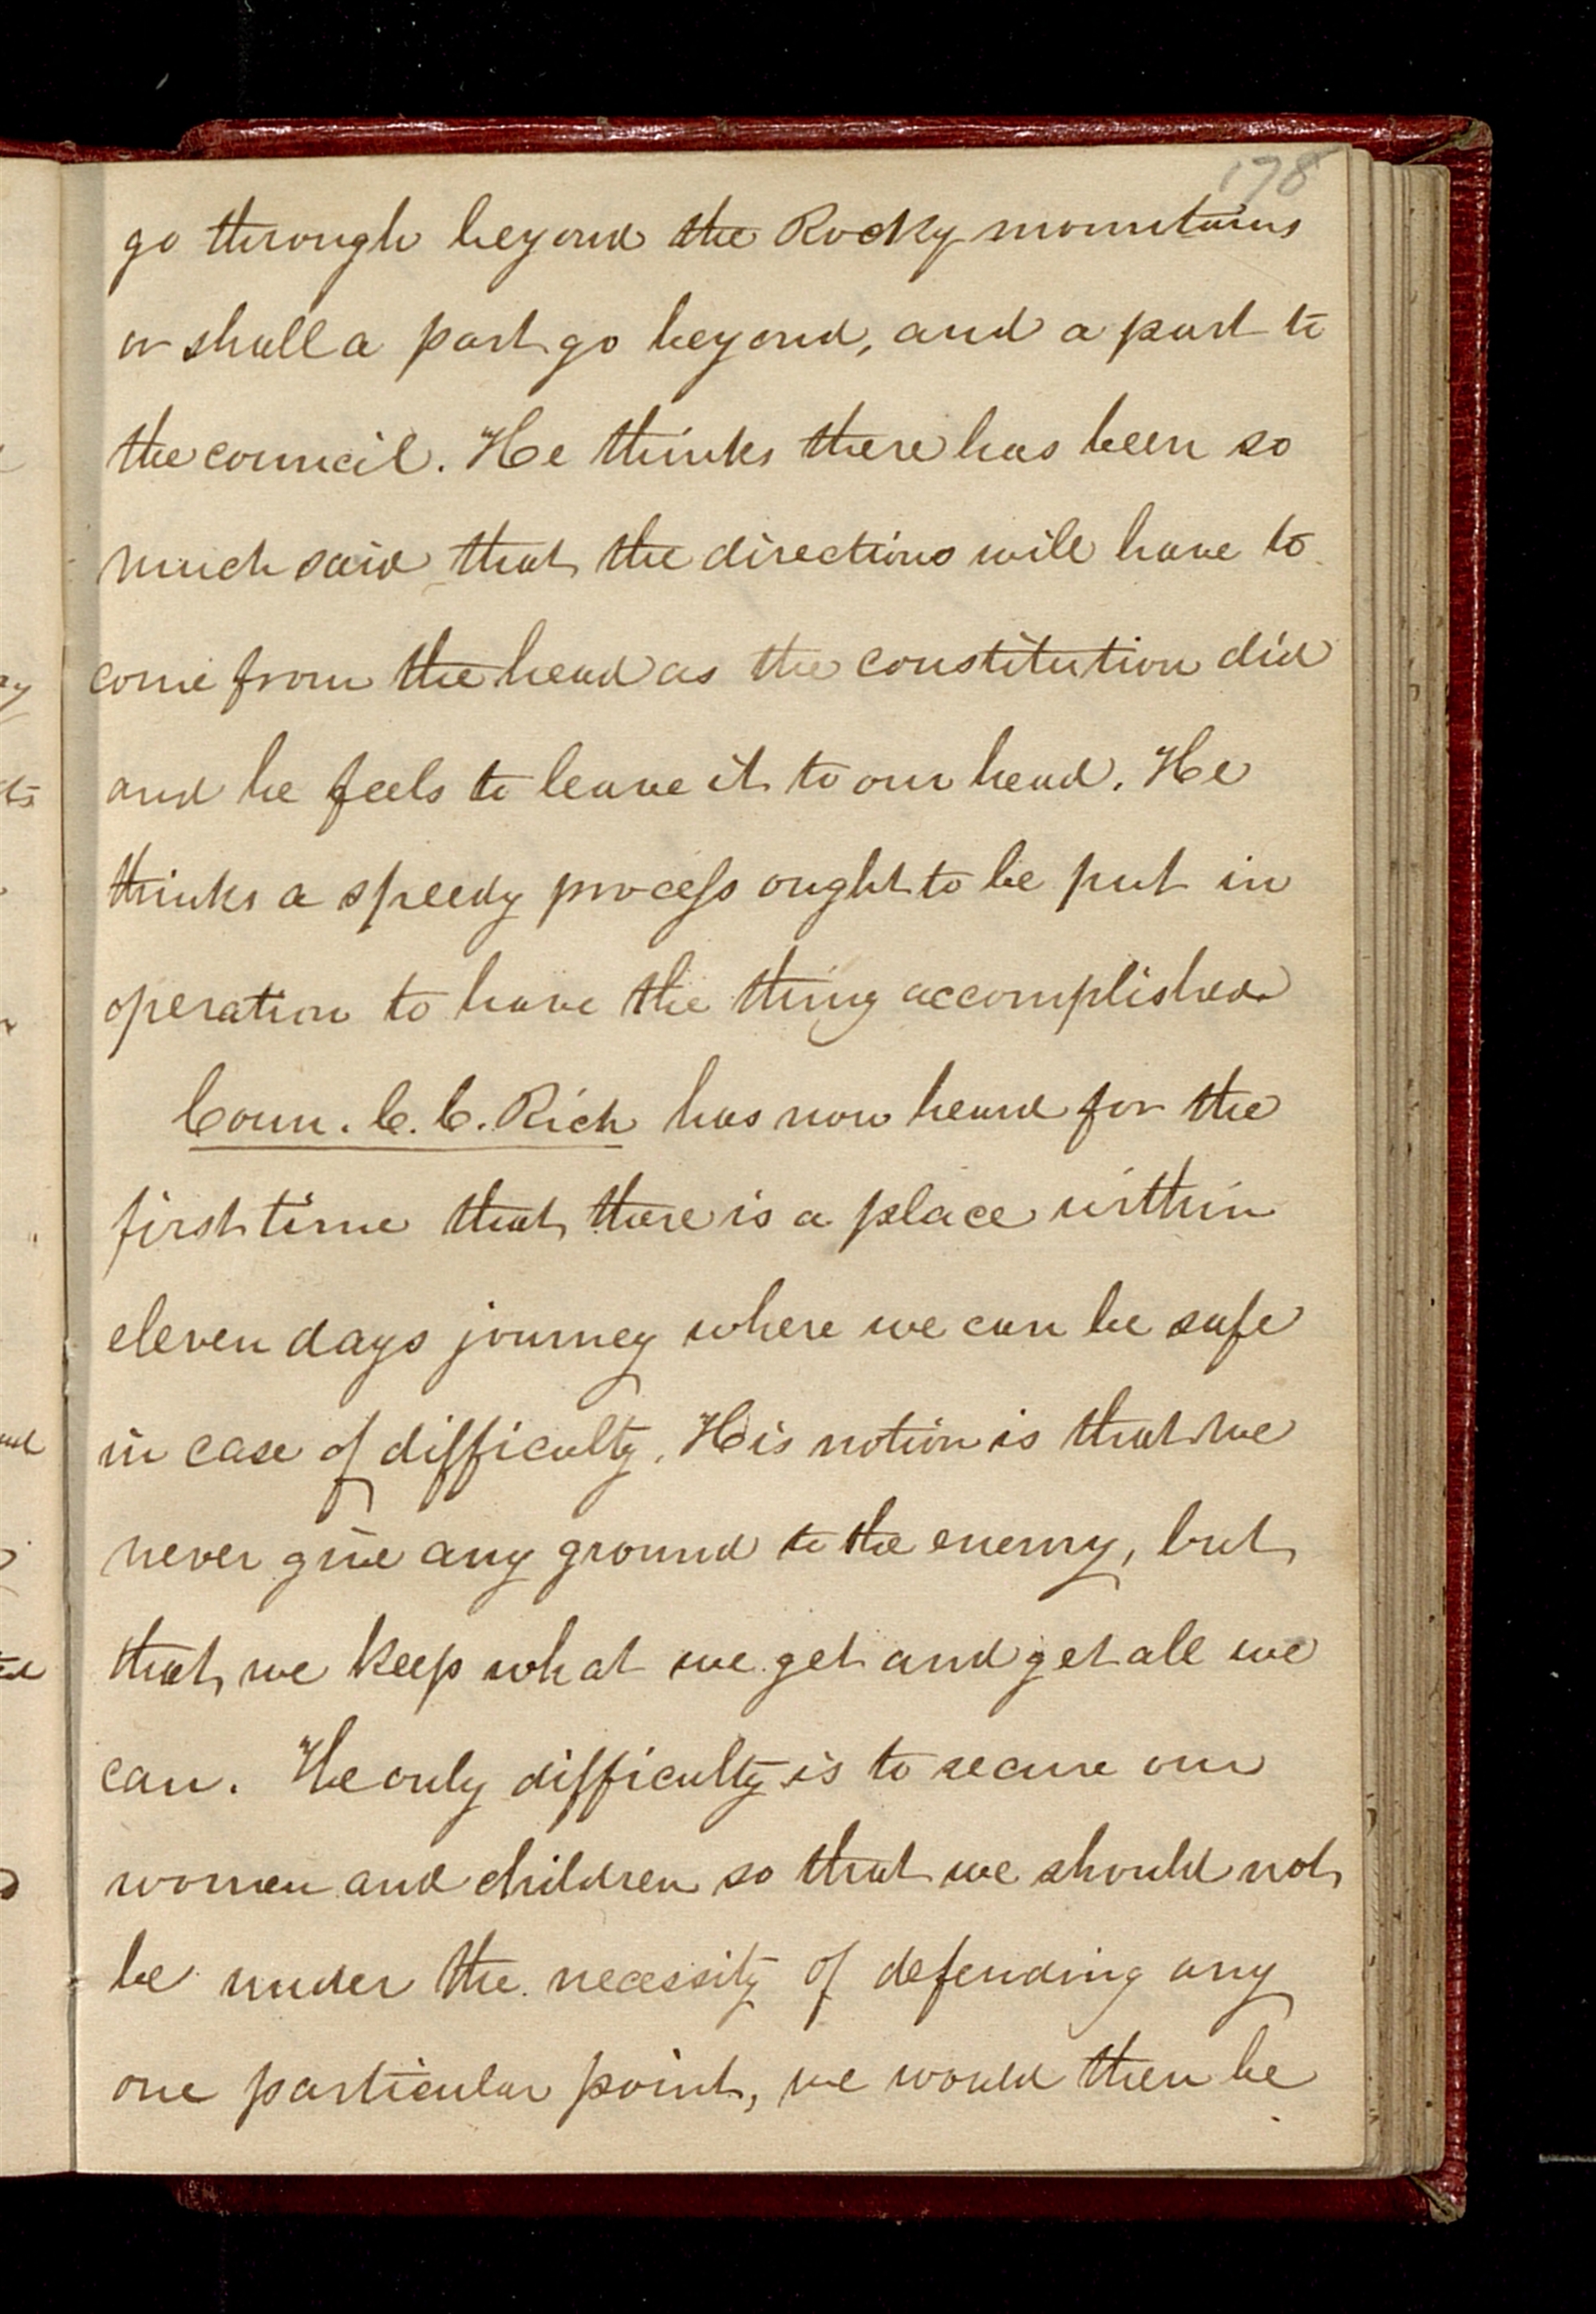 178
go through beyond the Rocky mountains
or shall a part go beyond, and a part to
the council. He thinks there has been so
much said that the directions will have to
come from the head as the constitution did
and he feels to leave it to our head. He
thinks a speedy process ought to be put in
operation to have the thing accomplished
Coun. C. C. Rich has now heard for the
first time that there is a place within
eleven days journey where we can be safe
in case of difficulty. His notion is that we
never give any ground to the enemy, but
that we keep what we get and get all we
can. The only difficulty is to secure our
women and children so that we should not
be under the necessity of defending any
one particular point, we would then be